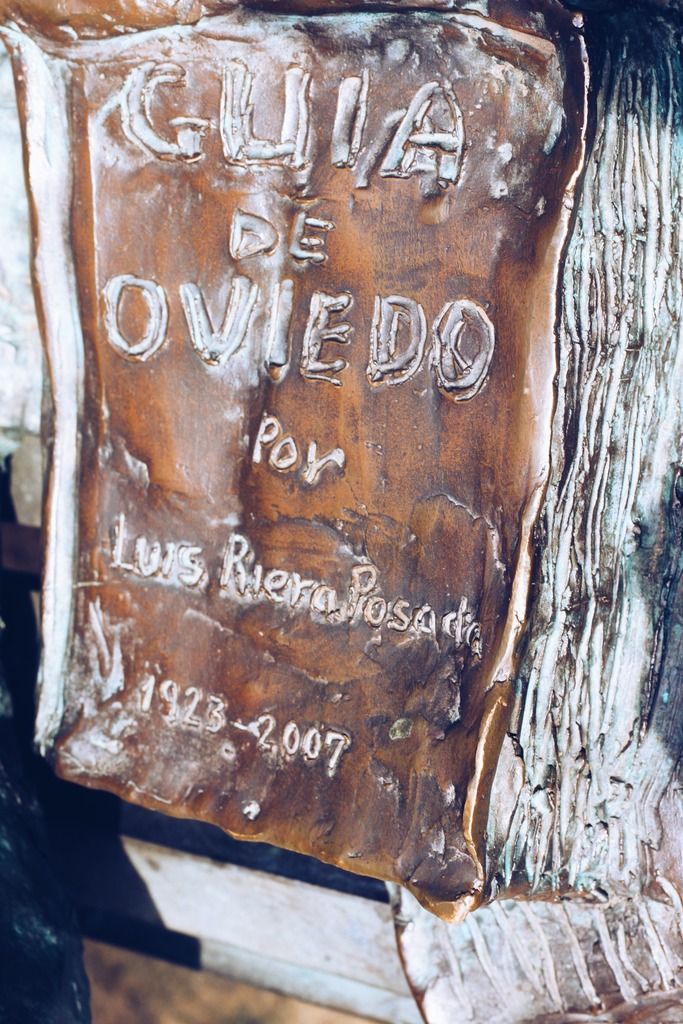 GUIA
DE
OVIEDO
POR
Luis Riera Posada
1923-2007